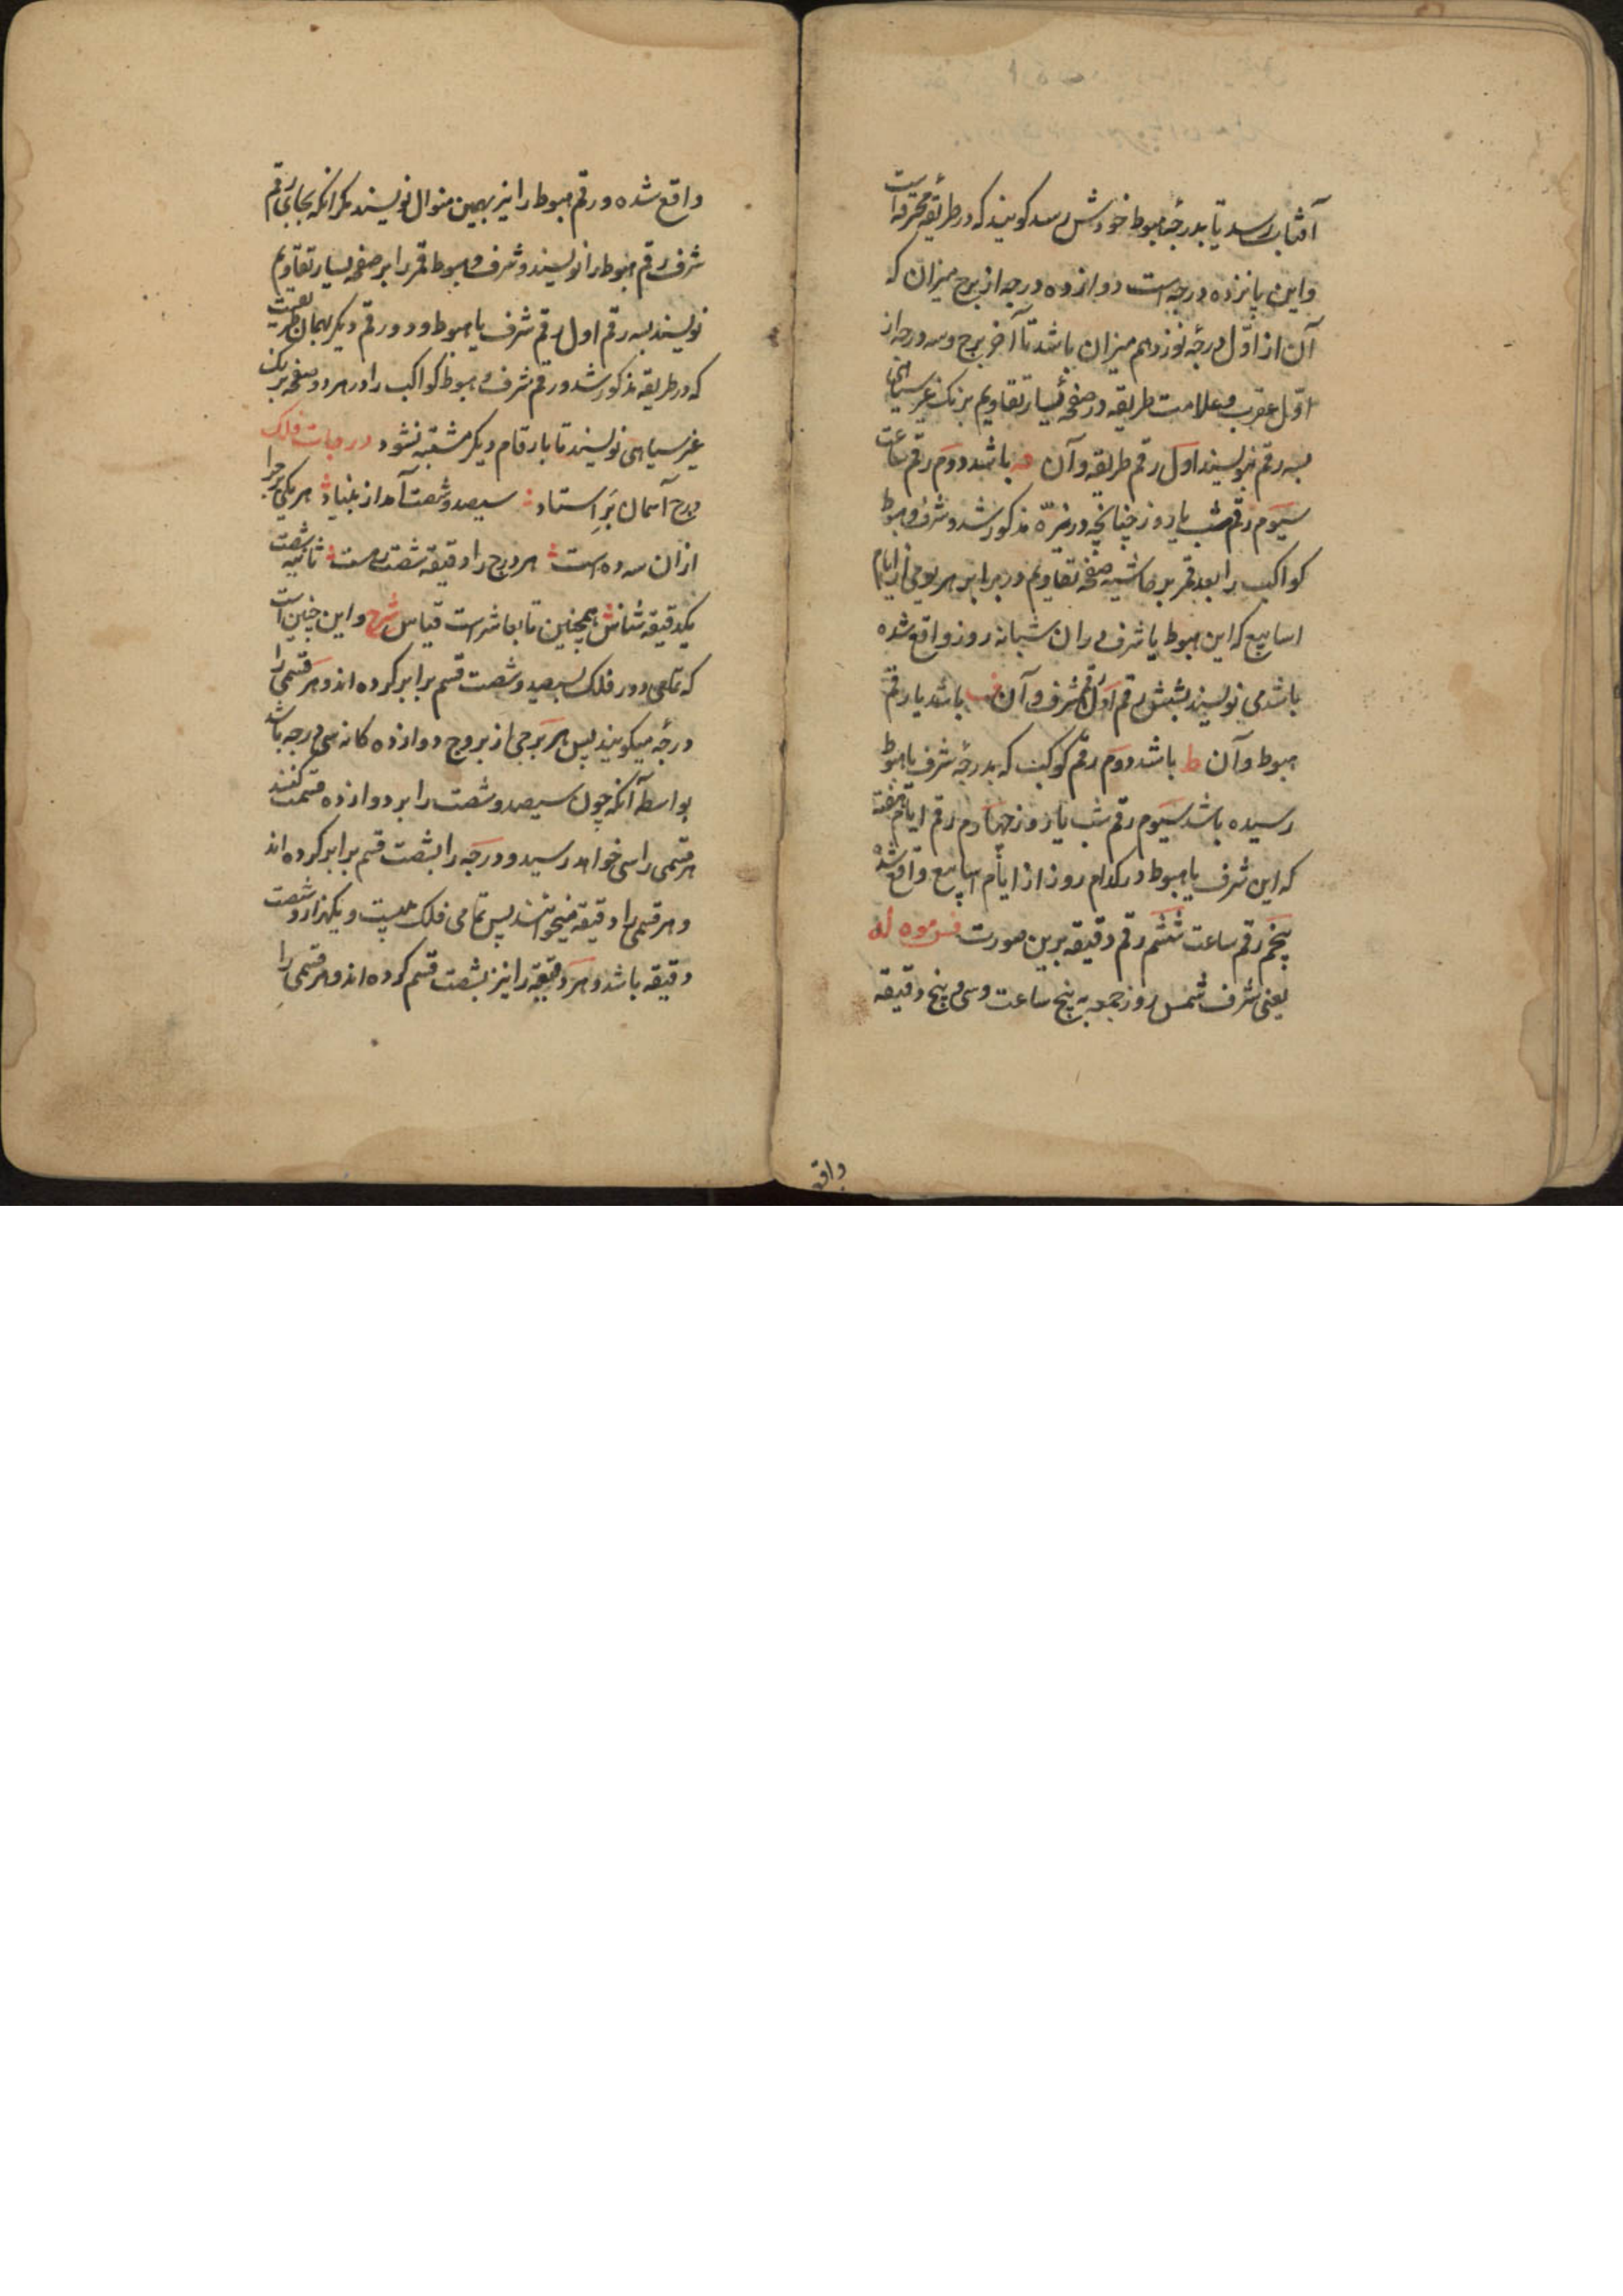 آفتاب رسد تا بدرجهٔ هبوط خودش رسد گویند که در طریقهٔ محترقه است
و این پانزده درجه است دوازده درجه از برج میزان که
آن از اوّل درجهٔ نوزدهم میزان باشد تا آخر برج و سه درجه از
اوّل عقرب و علامت طریقه در صفحهٔ یسار تقاویم برنگ غیر سیاهی
بسه رقم نویسند اول رقم طریقه و آن قه باشد دوم رقم ساعت
سیوم رقم شب یا روز چنانچه در نیّره مذکور شد و شرف و هبوط
کواکب را بعد قمر بر حاشیه صفحه تقاویم در برابر هر یومی از ایام
اسابیع که این هبوط یا شرف در ان شبانه روز واقع شده
باشد می نویسند بشش رقم اوّل رقم شرف و آن ف باشد یا رقم
هبوط و آن ط باشد دوم رقم کوکب که بدرجهٔ شرف یا هبوط
رسیده باشد سیوم رقم شب یا روز چهارم رقم ایام هفته
که این شرف یا هبوط در کدام روز از ایام اسابیع واقع شده
پنجم رقم ساعت ششم رقم دقیقه برین صورت
یعنی شرف شمس روز جمعه به پنج ساعت و سی و پنج دقیقه
واقع
واقع شده و رقم هبوط را نیز بهمین منوال نویسند مگر آنکه بجای رقم
شرف رقم هبوط را نویسند و شرف و هبوط قمر را بر صفحه یسار تقاویم
نویسند بسه رقم اول رقم شرف یا هبوط و دو رقم دیگر بهمان طریقست
که در طریقه مذکور شد و رقم شرف و هبوط کواکب را در هر دو صفحه برنگ
غیر سیاهی نویسند تا بارقام دیگر مشتبه نشود درجات فلک
درج آسمان بر استاد سیصد و شصت آمد از بنیاد هر یکی برج را
ازان سه ده است هر درج را دقیقه شصت است ثانیه شصت
یکدقیقه شناس همچنین تا بعاشر است قیاس شرح و این چنین است
که تمامی دور فلک بسیصد و شصت قسم برابر کرده اند و هر قسمی را
درجه میگویند پس هر برجی از بروج دوازده گانه سی درجه باشد
بواسطه آنکه چون سیصد و شصت را بر دوازده قسمت کنند
هر قسمی را سی خواهد رسید و درجه را بشصت قسم برابر کرده اند
و هر قسمی را دقیقه میخوانند پس تمامی فلک بیست و یکهزار و شصت
دقیقه باشد و هر دقیقه را نیز بشصت قسم کرده اند و هر قسمی را